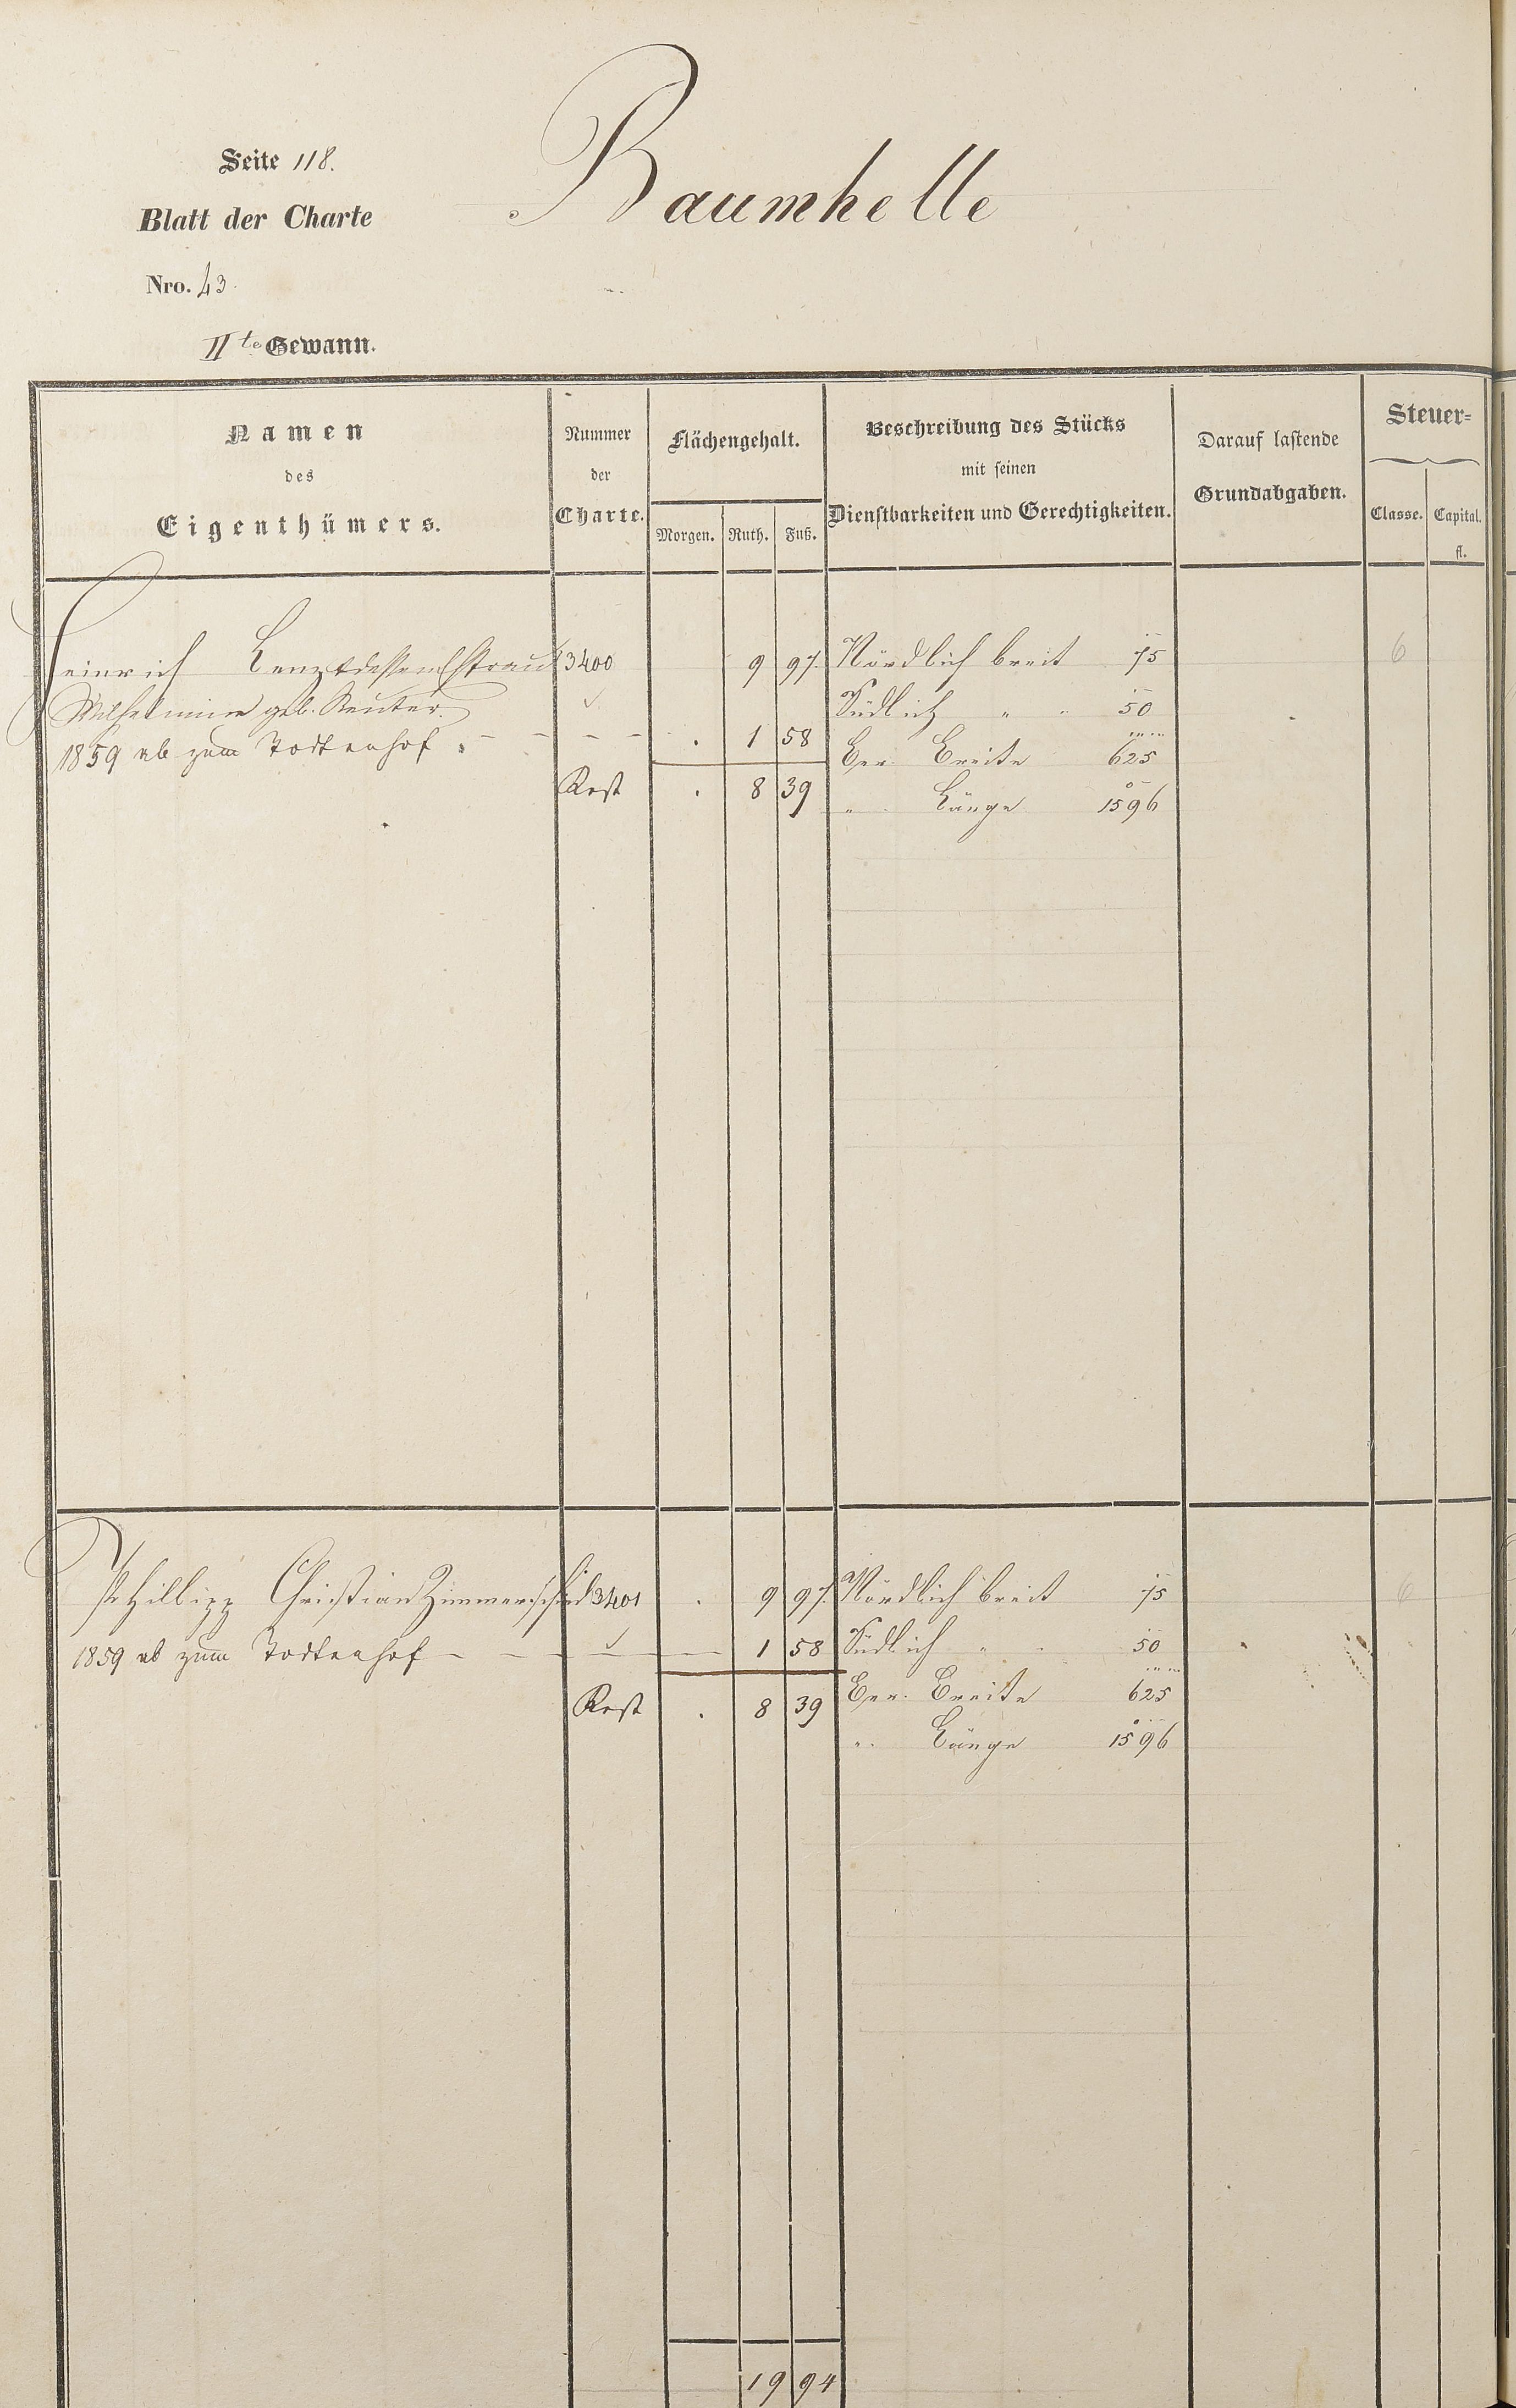 Seite 118.
Baumhelle
Blatt der Charte
Nro. 43.
IIte Gewann.
Namen
des
Eigenthümers.
Nummer
der
Charte.
Flächengehalt.
Morgen. Ruth. Fuß.
Beschreibung des Stücks
mit seinen
Dienstbarkeiten und Gerechtigkeiten.
Darauf lastende
Grundabgaben.
Steuer=
Classe. Capital.
fl.
Heinrich Lenz & dessen Ehfrau 3400 9 97. Nördlich breit 75 6
Wilhelmine geb. Reuter. Südlich " " 50
1859 ab zum Todtenhof . - - - - . 1 58 Ber. Breite 625
Rest . 8 39 " Länge 1596
Philipp Christian Zimmerschied 3401 . 9 97. Nördlich breit 75 6
1859 ab zum Todtenhof - - - - 1 58 Südlich " " 50
Rest . 8 39 Ber. Breite 625
" Länge 1596
19 94